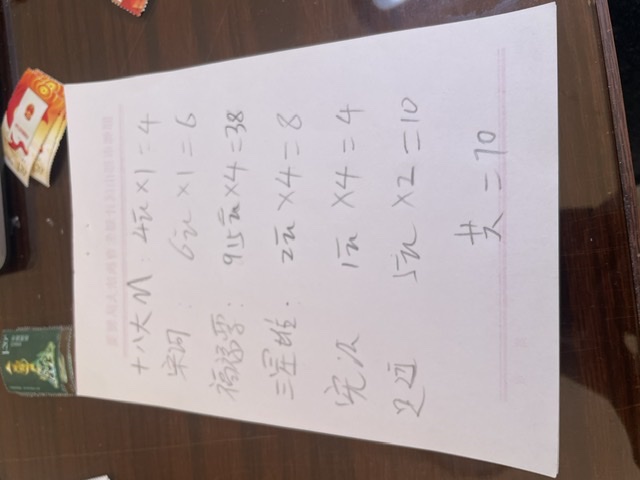 十八大M：4元×1＝4
宋词：6元×1＝6
福禄寿：9.5元×4＝38
三军雄：2元×4＝8
宪法 1元×4＝4
足运 5元×2＝10
共＝70